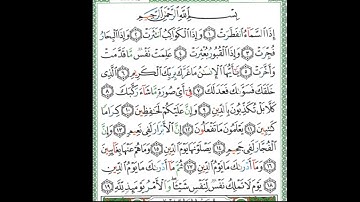 بِسْمِ ٱللَّهِ ٱلرَّحْمَٰنِ ٱلرَّحِيمِ
إِذَا ٱلسَّمَآءُ ٱنفَطَرَتْ ١ وَإِذَا ٱلْكَوَاكِبُ ٱنتَثَرَتْ ٢ وَإِذَا ٱلْبِحَارُ
فُجِّرَتْ ٣ وَإِذَا ٱلْقُبُورُ بُعْثِرَتْ ٤ عَلِمَتْ نَفْسٌ مَّا قَدَّمَتْ
وَأَخَّرَتْ ٥ يَٰٓأَيُّهَا ٱلْإِنسَٰنُ مَا غَرَّكَ بِرَبِّكَ ٱلْكَرِيمِ ٦ ٱلَّذِى
خَلَقَكَ فَسَوَّىٰكَ فَعَدَلَكَ ٧ فِىٓ أَىِّ صُورَةٍ مَّا شَآءَ رَكَّبَكَ ٨
كَلَّا بَلْ تُكَذِّبُونَ بِٱلدِّينِ ٩ وَإِنَّ عَلَيْكُمْ لَحَٰفِظِينَ ١٠ كِرَامًا
كَٰتِبِينَ ١١ يَعْلَمُونَ مَا تَفْعَلُونَ ١٢ إِنَّ ٱلْأَبْرَارَ لَفِى نَعِيمٍ ١٣ وَإِنَّ
ٱلْفُجَّارَ لَفِى جَحِيمٍ ١٤ يَصْلَوْنَهَا يَوْمَ ٱلدِّينِ ١٥ وَمَا هُمْ عَنْهَا بِغَآئِبِينَ
١٦ وَمَآ أَدْرَىٰكَ مَا يَوْمُ ٱلدِّينِ ١٧ ثُمَّ مَآ أَدْرَىٰكَ مَا يَوْمُ ٱلدِّينِ
١٨ يَوْمَ لَا تَمْلِكُ نَفْسٌ لِّنَفْسٍ شَيْـًٔا وَٱلْأَمْرُ يَوْمَئِذٍ لِّلَّهِ ١٩